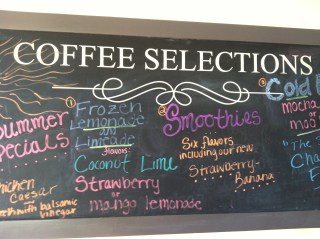 COFFEE SELECTIONS
Summer
Specials
Chicken
Caesar
balsamic
vinegar
①
Frozen
Lemonade
and
Limeade
flavors
Coconut Lime
Strawberry
or
mango lemonade
②
Smoothies
Six flavors
including our new
Strawberry-
Banana
③
Cold
mocha
or
"The
Cha
F